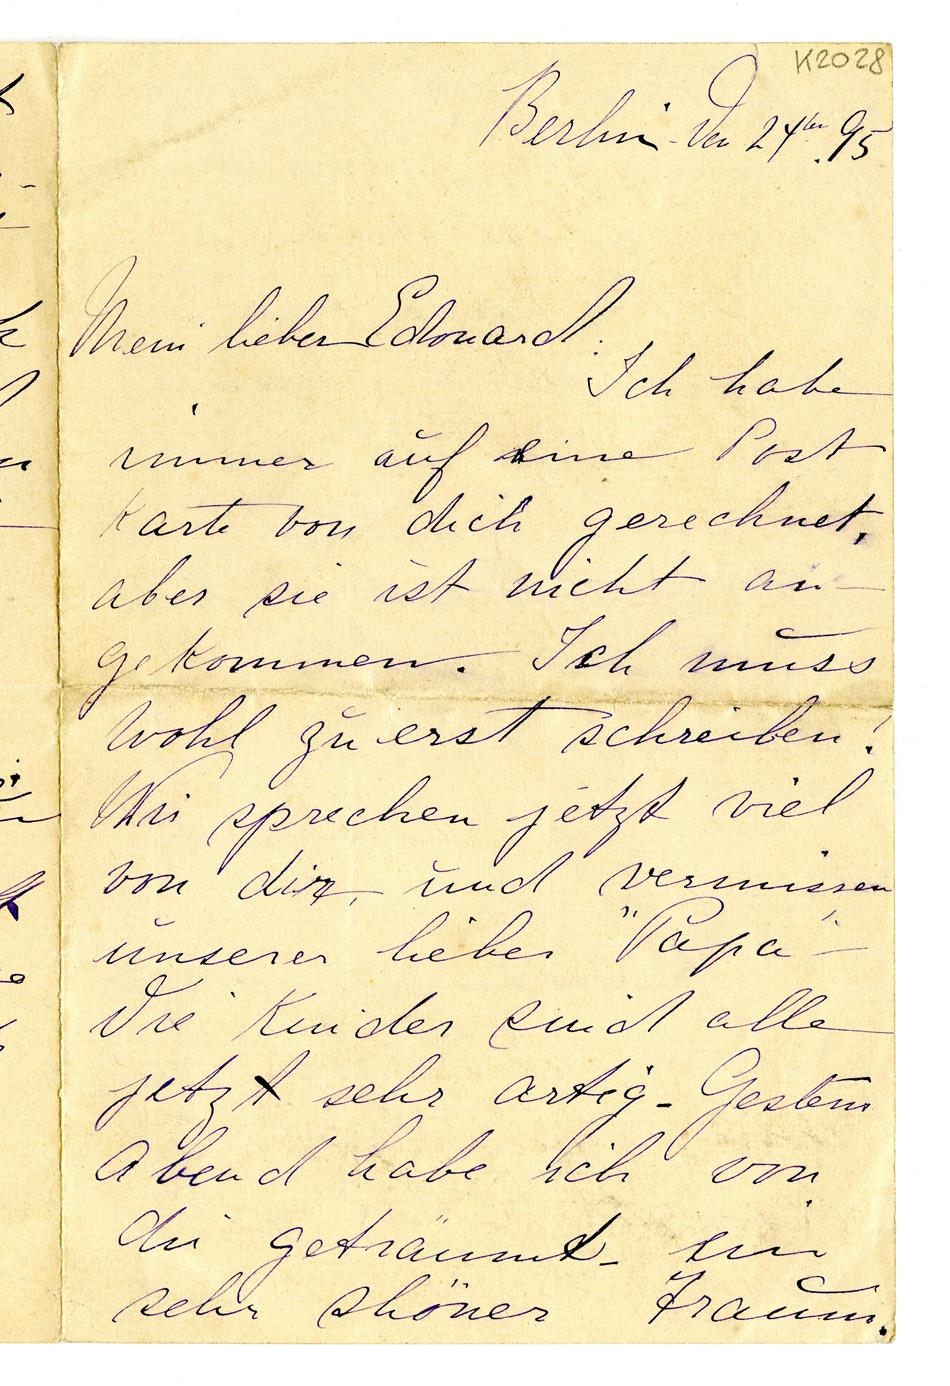 K2028
Berlin den 24ten 95
Mein lieber Edouard.
Ich habe
immer auf eine Post
Karte von dich gerechnet,
aber sie ist nicht an-
gekommen. Ich muss
wohl zu erst schreiben!
Wir sprechen jetzt viel
von dir, und vermissen
unserer lieber "Papa"-
Die Kinder sind alle
jetzt sehr artig - Gestern
Abend habe ich von
dir geträumt - ein
sehr shöner Traum.